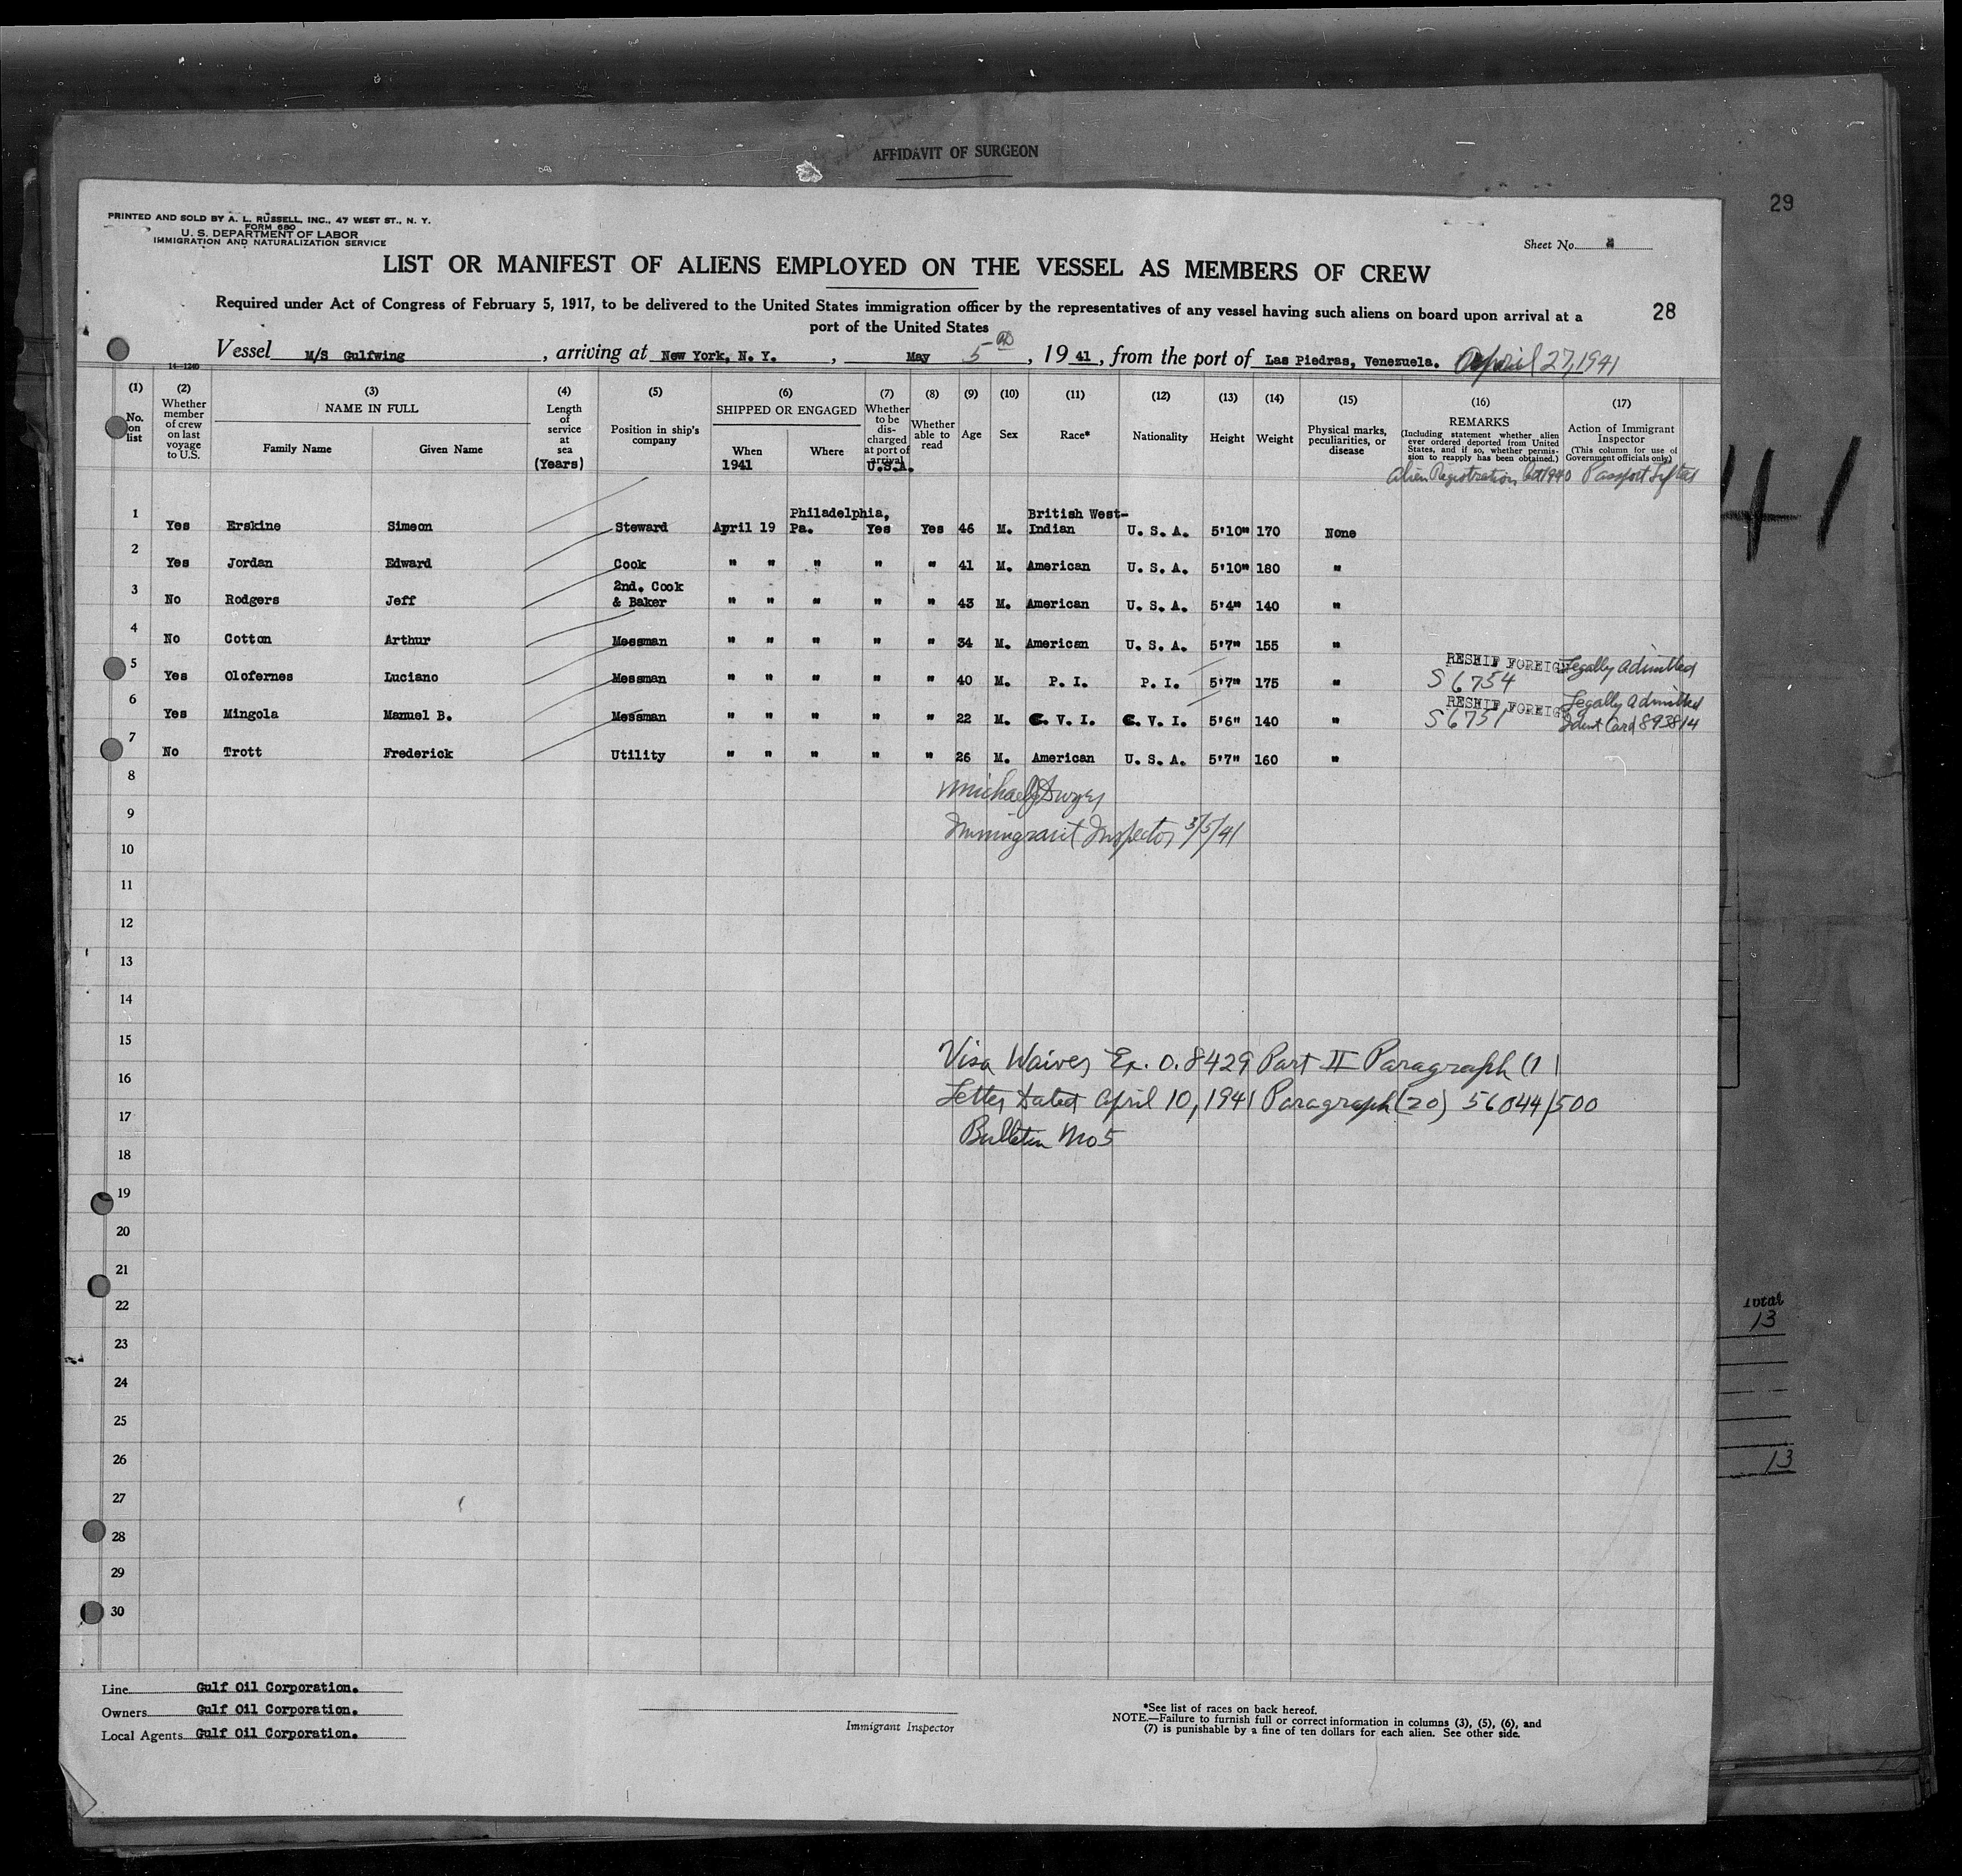 AFFIDAVIT OF SURGEON
29
PRINTED AND SOLD BY A. L. RUSSELL, INC., 47 WEST ST., N. Y.
FORM 680
U. S. DEPARTMENT OF LABOR
IMMIGRATION AND NATURALIZATION SERVICE
Sheet No.
LIST OR MANIFEST OF ALIENS EMPLOYED ON THE VESSEL AS MEMBERS OF CREW
Required under Act of Congress of February 5, 1917, to be delivered to the United States immigration officer by the representatives of any vessel having such aliens on board upon arrival at a
port of the United States
28
Vessel M/S Gulfwing, arriving at New York, N. Y., May 5, 1941, from the port of Las Piedras, Venezuela. April 27, 1941
14-1240
(1) No. on list
(2) Whether member of crew on last voyage to U.S.
(3) NAME IN FULL Family Name Given Name
(4) Length of service at sea (Years)
(5) Position in ship's company
(6) SHIPPED OR ENGAGED When 1941 Where
(7) Whether to be discharged at port of arrival U.S.A.
(8) Whether able to read
(9) Age
(10) Sex
(11) Race*
(12) Nationality
(13) Height
(14) Weight
(15) Physical marks, peculiarities, or disease
(16) REMARKS (Including statement whether alien ever ordered deported from United States, and if so, whether permission to reapply has been obtained.)
(17) Action of Immigrant Inspector (This column for use of Government officials only)
Alien Registration Act 1940 Passport Lifted
1 Yes Erskine Simeon Steward April 19 Philadelphia, Pa. Yes Yes 46 M. British West-Indian U. S. A. 5'10" 170 None
2 Yes Jordan Edward Cook " " " " " 41 M. American U. S. A. 5'10" 180 "
3 No Rodgers Jeff 2nd. Cook & Baker " " " " " 43 M. American U. S. A. 5'4" 140 "
4 No Cotton Arthur Messman " " " " " 34 M. American U. S. A. 5'7" 155 "
5 Yes Olofernes Luciano Messman " " " " " 40 M. P. I. P. I. 5'7" 175 " RESHIP FOREIGN S6754 Legally Admitted
6 Yes Mingola Manuel B. Messman " " " " " 22 M. C. V. I. C. V. I. 5'6" 140 " RESHIP FOREIGN S6751 Legally Admitted Ident Card 893814
7 No Trott Frederick Utility " " " " " 26 M. American U. S. A. 5'7" 160 "
8
Michael J Dwyer
9
Immigrant Inspector 5/5/41
10
11
12
13
14
15
Visa Waiver Ex. O. 8429 Part II Paragraph (1)
16
Letter Dated April 10, 1941 Paragraph (20) 56044/500
17
Bulletin No 5
18
19
20
21
22
23
24
25
26
27
28
29
30
41
Total
13
13
Line Gulf Oil Corporation.
Owners Gulf Oil Corporation.
Local Agents Gulf Oil Corporation.
Immigrant Inspector
*See list of races on back hereof.
NOTE.—Failure to furnish full or correct information in columns (3), (5), (6), and
(7) is punishable by a fine of ten dollars for each alien. See other side.